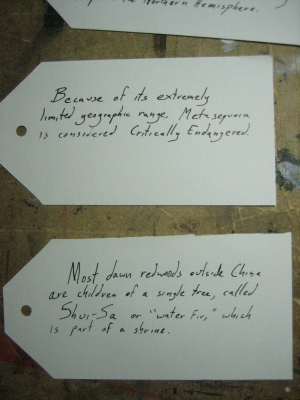 the Northern Hemisphere.
Because of its extremely
limited geographic range, Metasequoia
is considered Critically Endangered.
Most dawn redwoods outside China
are children of a single tree, called
Shui-Sa or "water fir," which
is part of a shrine.